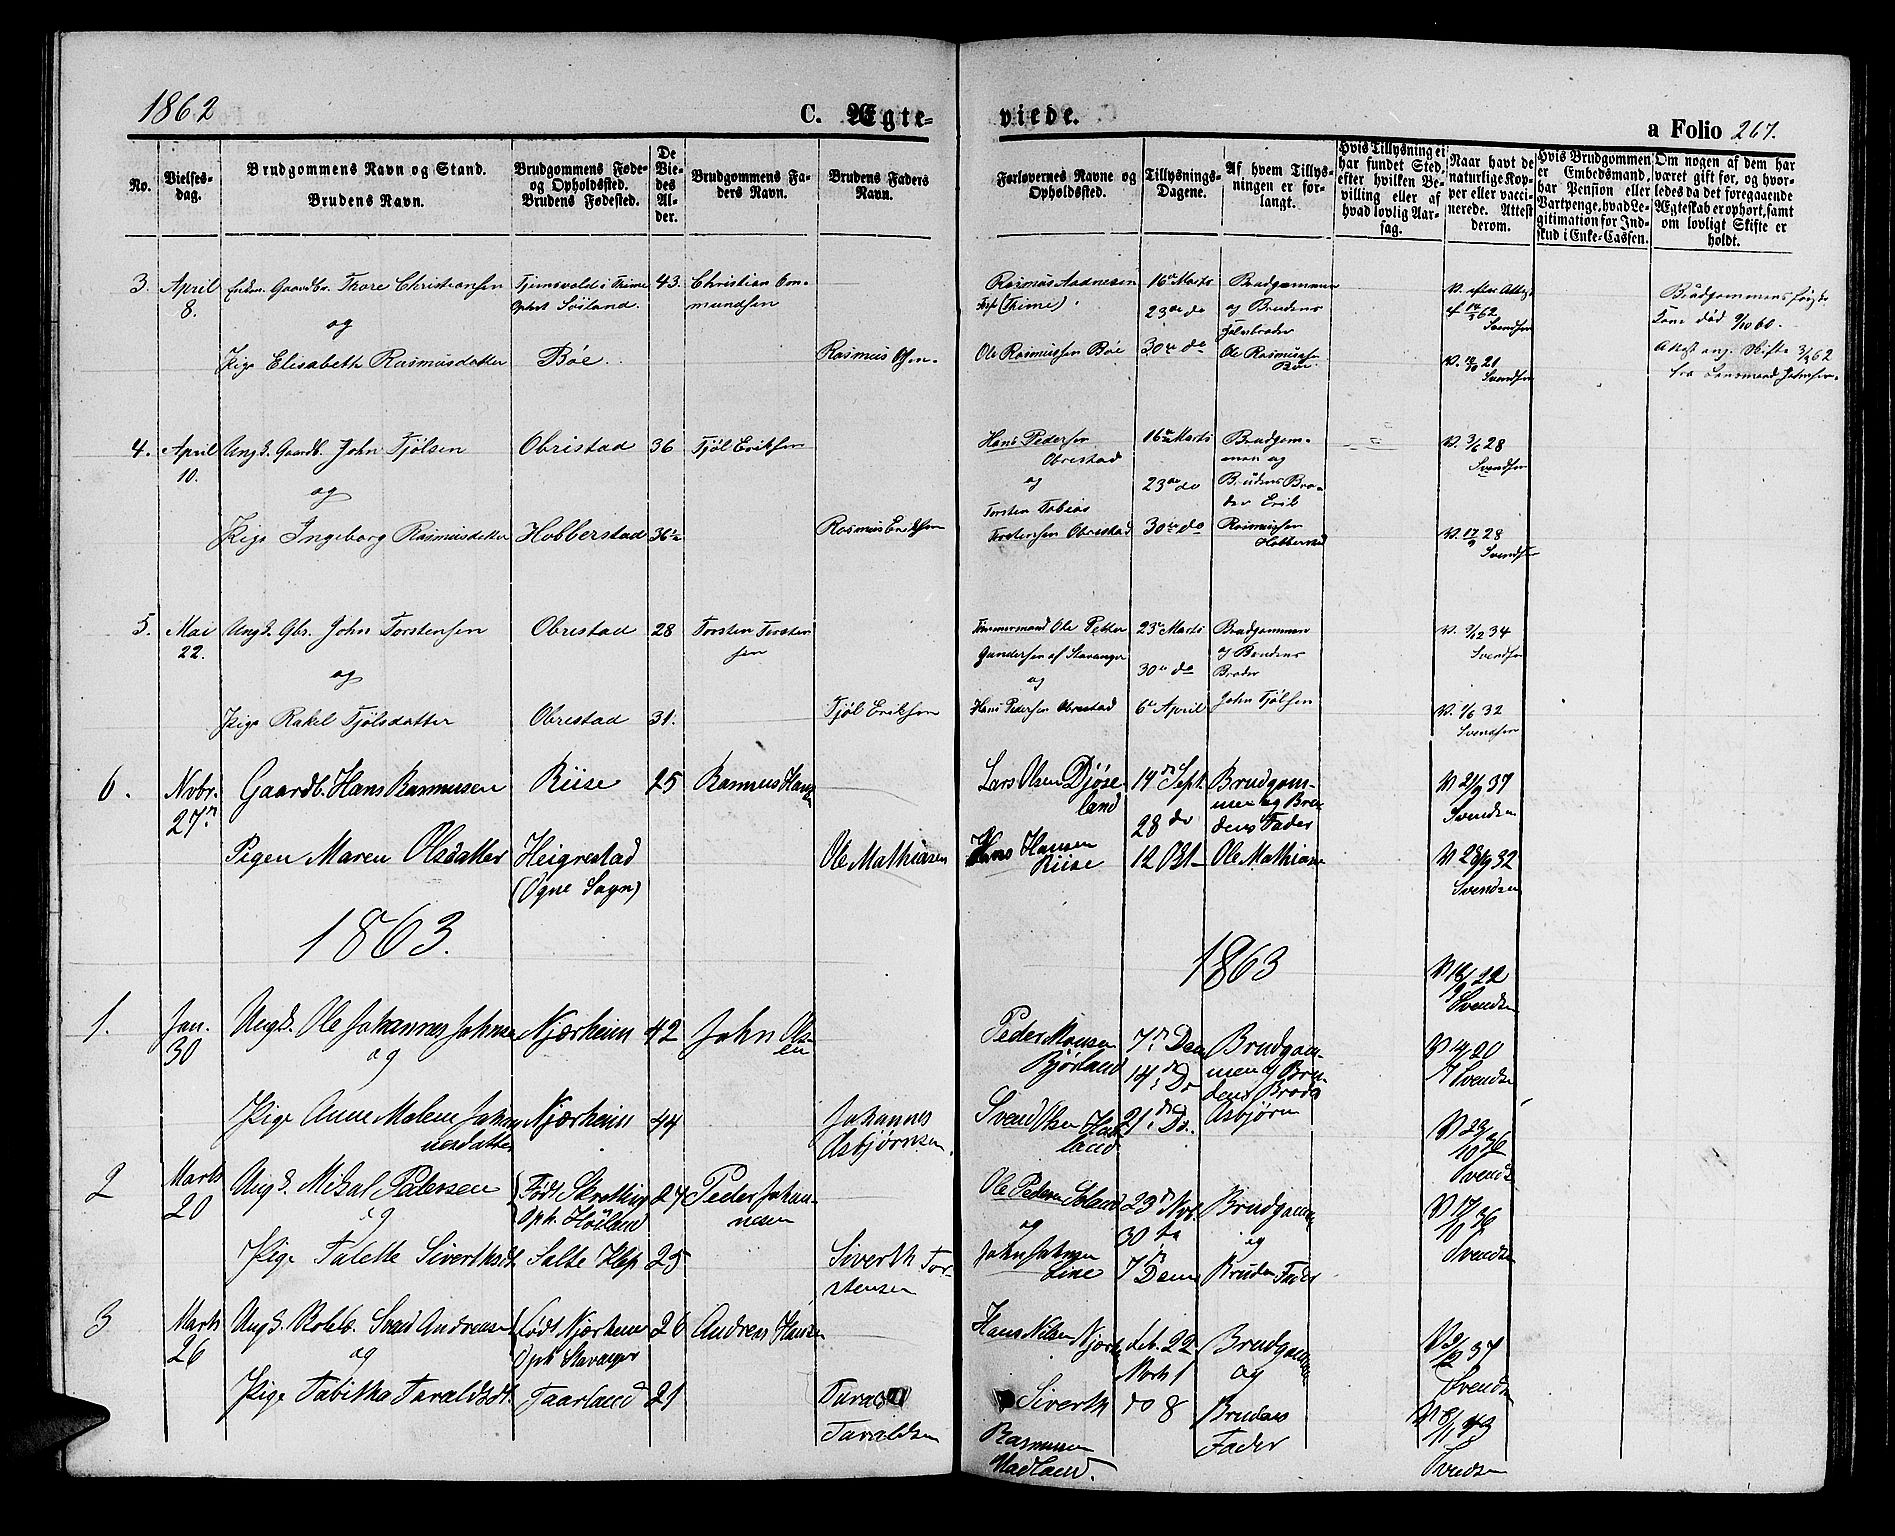 1862
C. Ægte-
viede.
a Folio 267.
No.
Vielses-
dag.
Brudgommens Navn og Stand.
Brudens Navn.
Brudgommens Føde-
og Opholdssted.
Brudens Fødested.
De
Vie-
des
Al-
der.
Brudgommens Fa-
ders Navn.
Brudens Faders
Navn.
Forlovernes Navne og
Opholdssted.
Tillysnings-
Dagene.
Af hvem Tillys-
ningen er for-
langt.
Hvis Tillysning ei
har fundet Sted,
efter hvilken Be-
villing eller af
hvad lovlig Aar-
sag.
Naar havt de
naturlige Kop-
per eller vacci-
nerede. Attest
derom.
Hvis Brudgommen
er Embedsmand,
har Pension eller
Vartpenge, hvad Le-
gitimation for Ind-
skud i Enke-Cassen.
Om nogen af dem har
været gift før, og hvor-
ledes da det foregaaende
Ægteskab er ophørt, samt
om lovligt Skifte er
holdt.
3. April 8.
Enkm. Gaardbr. Thore Christiansen
og
Pige Elisabeth Rasmusdatter
Tjemsvold i Thime
Ophst Söiland.
Bøe.
43.
Christian Om-
mundsen
Rasmus Olsen.
Rasmus Aadnesen
(Thime)
Ole Rasmussen Bøe
16de Marts
23de do
30te do
Brudgommen
og Brudens
Ole Rasmussen
Bøe.
V. efter Attest
Svendsen
Svendsen
Brudgommens
Kone død 9/10 60.
Attest ang. Skifte 3/3 62
fra Lensmand
4. April 10.
Ungk. Gaardb. John Tjølsen
og
Pige Ingeborg Rasmusdatter
Obrestad
Hobberstad
36
36½
Tjøl Eriksen
Rasmus Eriksen
Hans Pedersen
Obrestad
og
Torsten Tobias
Torstensen Obrestad
16de Marts
23de do
30te do
Brudgom-
men og
Brudens Bro-
der Erik
Rasmussen
Hobberstad
V. 3/6 28
Svendsen
V. 17/9 28
Svendsen
5. Mai 22.
Ungk. Gbr. John Torstensen
og
Pige Rakel Tjølsdatter
Obrestad
Obrestad
28
31.
Torsten Torsten
sen
Tjøl Eriksen
Tømmermand Ole Petter
Gundersen af Stavanger
og
Hans Pedersen Obrestad
23de Marts
30te do
6te April
Brudgommen
og Brudens
Broder
John Tjølsen
V. 9/12 34
Svendsen
V. 1/6 32
Svendsen
6. Nvbr. 27de
Gaardb. Hans Rasmusen
Pigen Maren Olsdatter
Riise
Heigrestad
(Ogne Sogn)
25
Rasmus Hansen
Ole Mathiasen
Lars Olsen Djøse
land
Hans Hansen
Riise
14de Sept.
28 do
12 Okt
Brudgom-
men og Bru
dens Fader
Ole Mathiasen
V 21/9 37
Svendsen
V 23/9 32
Svendsen
1863.
1863
1. Jan. 30
Ungk. Ole Johannes Johnsen
og
Pige Anne Malene Johan
nesdatter
Njærheim
Njærheim
42
44
John Ols-
en
Johannes
Asbjørnsen.
Peder Monsen
Bjørland
Svend Olsen Had
land
7de Decm
14de Do
21de Do.
Brudgom-
men og Bru-
dens Broder
Asbjørn
Svendsen
Svendsen
2 Marts 20
Ungk. Mikal Pedersen
og
Pige Talette Siverthsdt.
Født Skretting
Oph. Høiland
Salte Klep
27
25
Peder Johan-
nesen
Siverth Tor-
stensen
Ole Pedersen
og
John Johnsen
Line
23de Nvb.
30te do
7de Decm
Brudgommen
og
Brudens Fader
Svendsen
Svendsen
3 Marts 26
Ungk. Svend Andreasen
og
Pige Tabitha Taraldsdt.
Født Njærheim
Oph Stavanger
Taarland
26
21
Andreas Hansen
Tarald
Taraldsen
Hans Nilsen Njærheim
Siverth
Rasmusen
Hadland.
Feb. 22
Marts 1
do 8
Brudgommen
og
Brudens
Fader
Svendsen
Svendsen